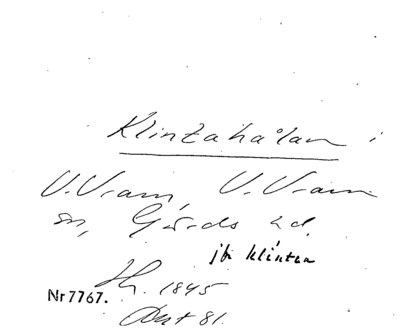 Klintahålan
V. Vram, V. Vram
sn, Gärds hd.
jfr klinten
Hj. 1845
Nr 7767.
81.